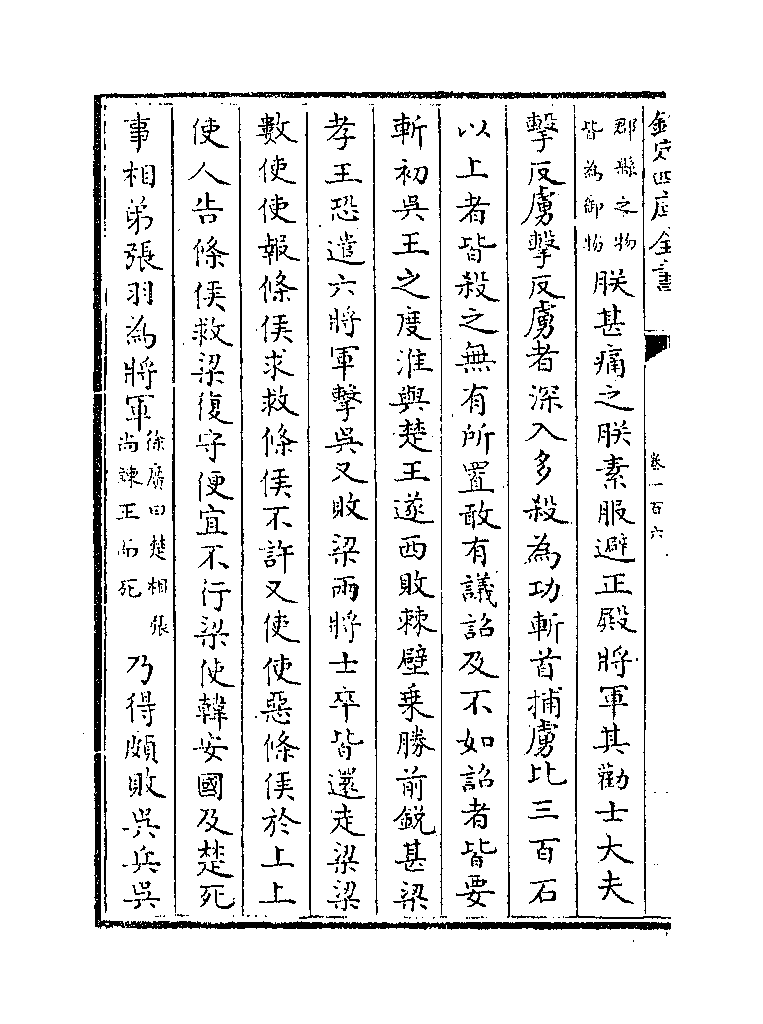 欽定四庫全書
卷一百六
郡縣之物
皆為御物
朕甚痛之朕素服避正殿將軍其勸士大夫
擊反虜擊反虜者深入多殺為功斬首捕虜比三百石
以上者皆殺之無有所置敢有議詔及不如詔者皆要
斬初吳王之度淮與楚王遂西敗棘壁乗勝前銳甚梁
孝王恐遣六將軍擊吳又敗梁兩將士卒皆還走梁梁
數使使報條侯求救條侯不許又使使惡條侯於上上
使人告條侯救梁復守便宜不行梁使韓安國及楚死
事相弟張羽為將軍
徐廣曰楚相張
尚諫王而死
乃得頗敗吳兵吳